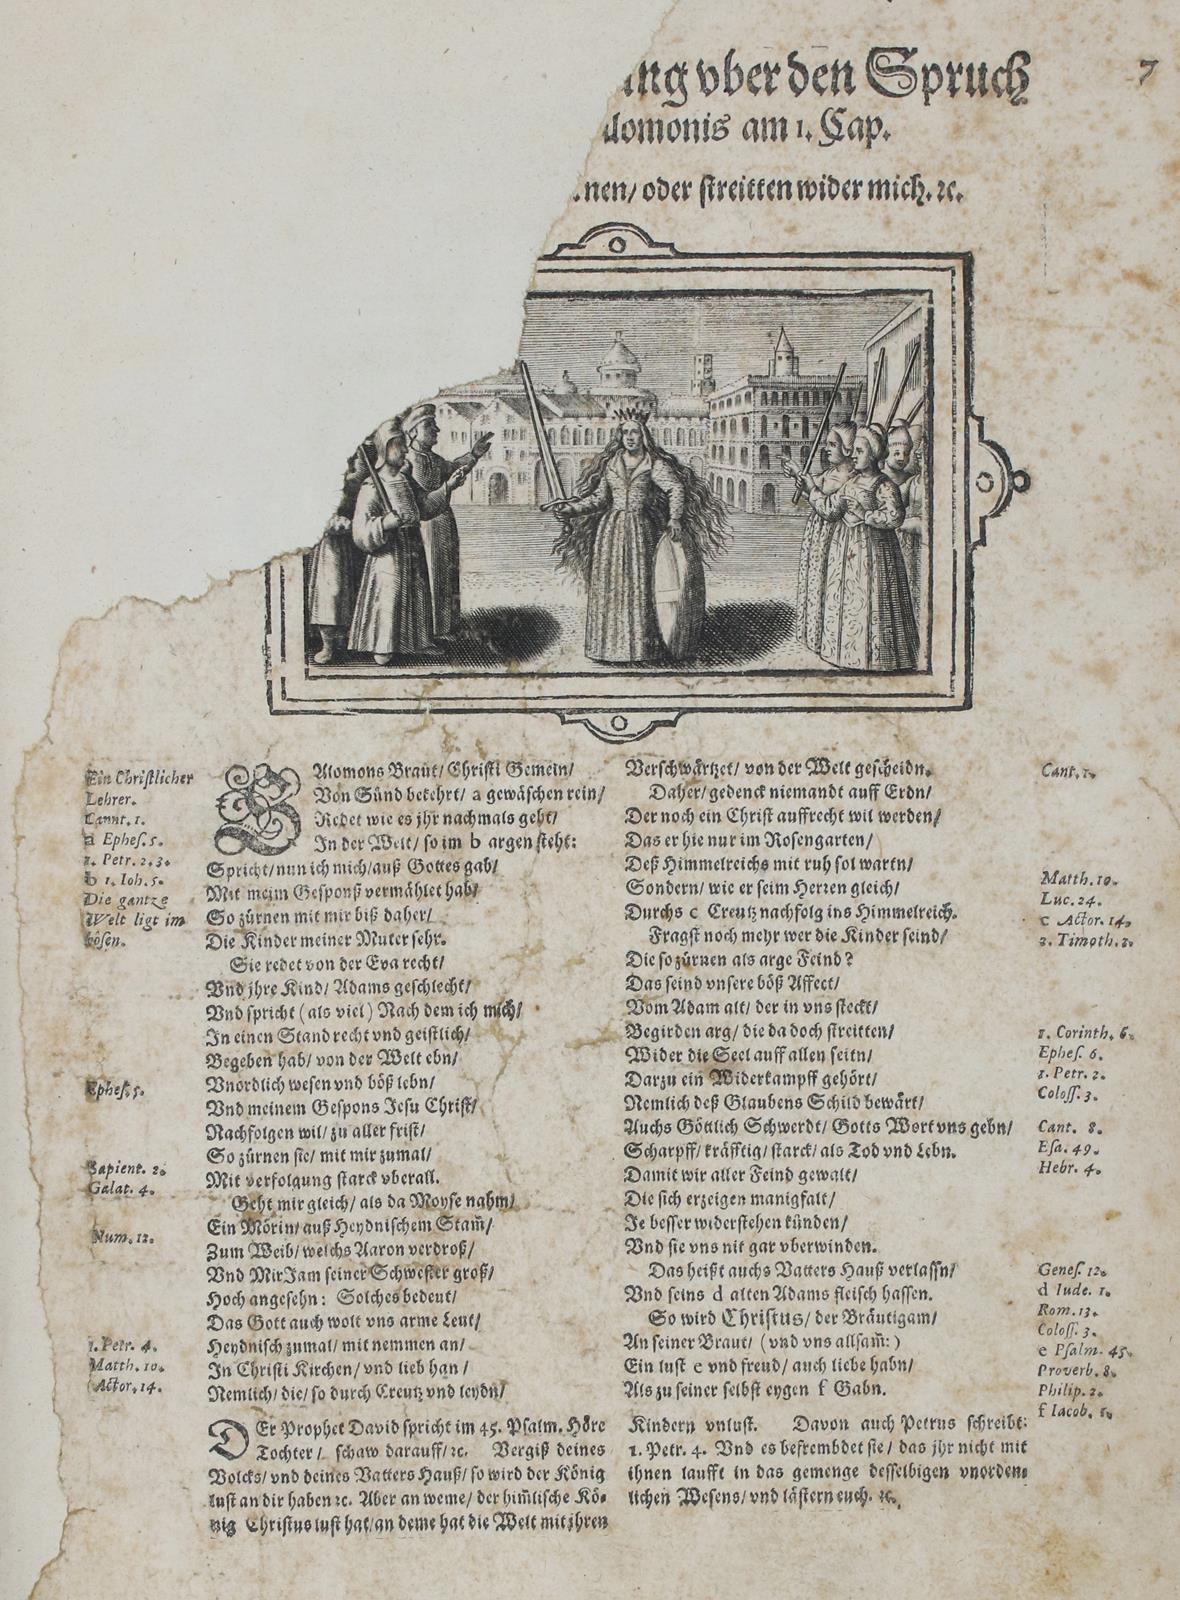 7
ung vber den Spruch
alomonis am 1. Cap.
nen/ oder streitten wider mich. ꝛc.
Ein Christlicher
Lehrer.
Cannt. 1.
a Ephes. 5.
1. Petr. 2. 3.
b 1. Ioh. 5.
Die gantze
Welt ligt im
bösen.
Ephes. 5.
Sapient. 2.
Galat. 4.
Num. 12.
1. Petr. 4.
Matth. 10.
Actor. 14.
SAlomons Braut/ Christi Gemein/
Von Sünd bekehrt/ a gewäschen rein/
Redet wie es jhr nachmals geht/
In der Welt/ so im b argen steht:
Spricht/ nun ich mich/ auß Gottes gab/
Mit meim Gesponß vermählet hab/
So zürnen mit mir biß daher/
Die Kinder meiner Muter sehr.
Sie redet von der Eva recht/
Vnd jhre Kind/ Adams geschlecht/
Vnd spricht (als viel) Nach dem ich mich/
In einen Stand recht vnd geistlich/
Begeben hab/ von der Welt ebn/
Vnördlich wesen vnd böß lebn/
Vnd meinem Gespons Jesu Christ/
Nachfolgen wil/ zu aller frist/
So zürnen sie/ mit mir zumal/
Mit verfolgung starck vberall.
Geht mir gleich/ als da Moyse nahm/
Ein Mörin/ auß Heydnischem Stam̃/
Zum Weib/ welchs Aaron verdroß/
Vnd MirJam seiner Schwester groß/
Hoch angesehn: Solches bedeut/
Das Gott auch wolt vns arme Leut/
Heydnisch zumal/ mit nemmen an/
In Christi Kirchen/ vnd lieb han/
Nemlich/ die/ so durch Creutz vnd leydn/
Verschwärtzet/ von der Welt gescheidn.
Daher/ gedenck niemandt auff Erdn/
Der noch ein Christ auffrecht wil werden/
Das er hie nur im Rosengarten/
Deß Himmelreichs mit ruh sol wartn/
Sondern/ wie er seim Herzen gleich/
Durchs c Creutz nachfolg ins Himmelreich.
Fragst noch mehr wer die Kinder seind/
Die so zürnen als arge Feind?
Das seind vnsere böß Affect/
Vom Adam alt/ der in vns steckt/
Begirden arg/ die da doch streitten/
Wider die Seel auff allen seitn/
Darzu ein Widerkampff gehört/
Nemlich deß Glaubens Schild bewärt/
Auchs Göttlich Schwerdt/ Gotts Wort vns gebn/
Scharpff/ kräfftig/ starck/ als Tod vnd Lebn.
Damit wir aller Feind gewalt/
Die sich erzeigen manigfalt/
Je besser widerstehen künden/
Vnd sie vns nit gar vberwinden.
Das heißt auchs Vatters Hauß verlassn/
Vnd seins d alten Adams fleisch hassen.
So wird Christus/ der Bräutigam/
An seiner Braut/ (vnd vns allsam̃:)
Ein lust e vnd freud/ auch liebe habn/
Als zu seiner selbst eygen f Gabn.
Cant. 1.
Matth. 10.
Luc. 24.
c Actor. 14.
2. Timoth. 2.
1. Corinth. 6.
Ephes. 6.
1. Petr. 2.
Coloss. 3.
Cant. 8.
Esa. 49.
Hebr. 4.
Genes. 12.
d Iude. 1.
Rom. 13.
Coloss. 3.
e Psalm. 45.
Proverb. 8.
Philip. 2.
f Iacob. 1.
DEr Prophet David spricht im 45. Psalm. Höre
Tochter/ schaw darauff/ ꝛc. Vergiß deines
Volcks/ vnd deines Vatters Hauß/ so wird der König
lust an dir haben ꝛc. Aber an weme/ der him̃lische Kö-
nig Christus lust hat/ an deme hat die Welt mit jhren
Kindern vnlust. Davon auch Petrus schreibt:
1. Petr. 4. Vnd es befrembdet sie/ das jhr nicht mit
ihnen laufft in das gemenge desselbigen vnorden-
lichen Wesens/ vnd lästern euch. ꝛc.